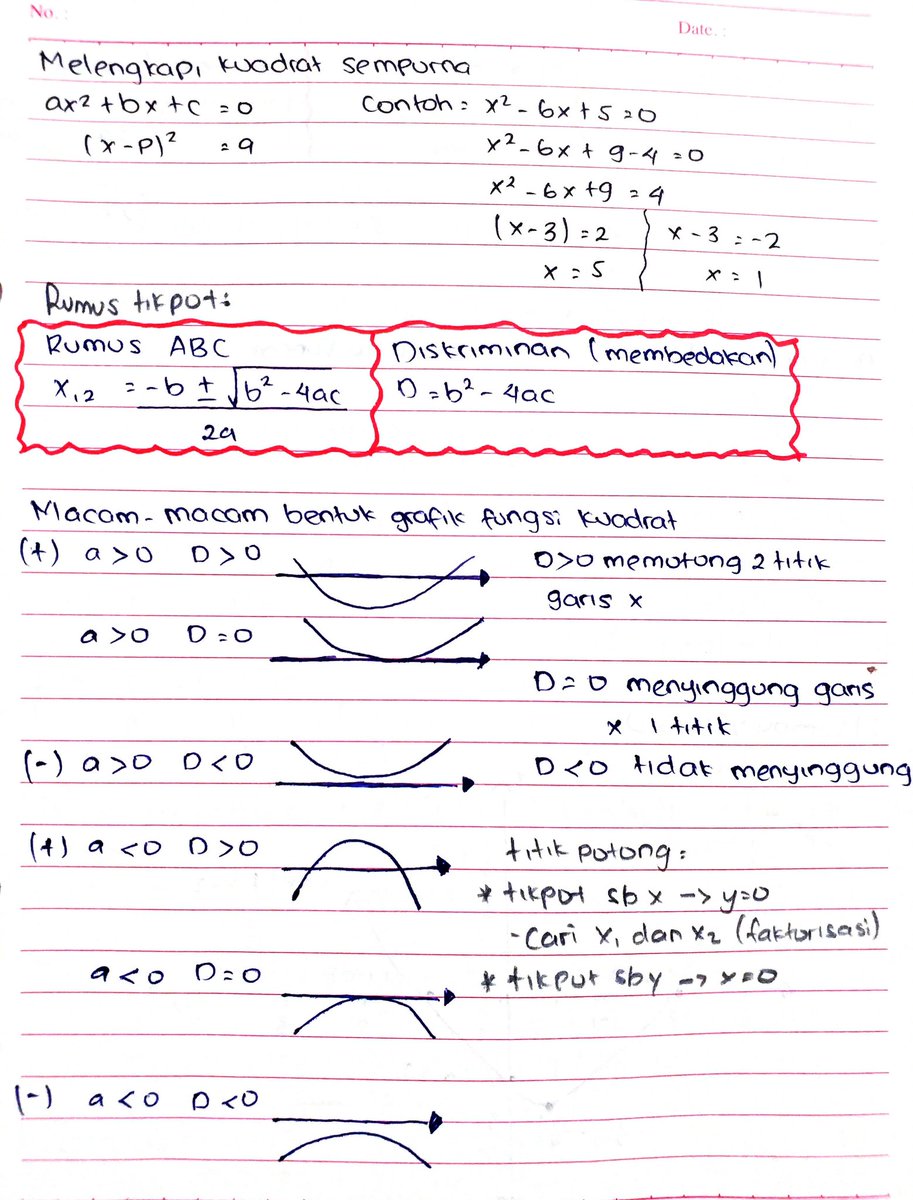 No. :
Date. :
Melengkapi kuadrat sempurna
ax² + bx + c = 0
(x - p)² = 9
Contoh = x² - 6x + 5 = 0
x² - 6x + 9 - 4 = 0
x² - 6x + 9 = 4
(x - 3) = 2
x = 5
x - 3 = -2
x = 1
Rumus tikpot:
Rumus ABC
x,₂ = -b ± √b² - 4ac
2a
Diskriminan (membedakan)
D = b² - 4ac
Macam - macam bentuk grafik fungsi kuadrat
(+) a > 0 D > 0
D>0 memotong 2 titik
garis x
a > 0 D = 0
D = 0 menyinggung garis
x 1 titik
(-) a > 0 D < 0
D < 0 tidak menyinggung
(+) a < 0 D > 0
titik potong:
* tikpot sb x -> y=0
- Cari x₁ dan x₂ (fakturisasi)
a < 0 D = 0
* tikput sby -> x=0
(-) a < 0 D < 0